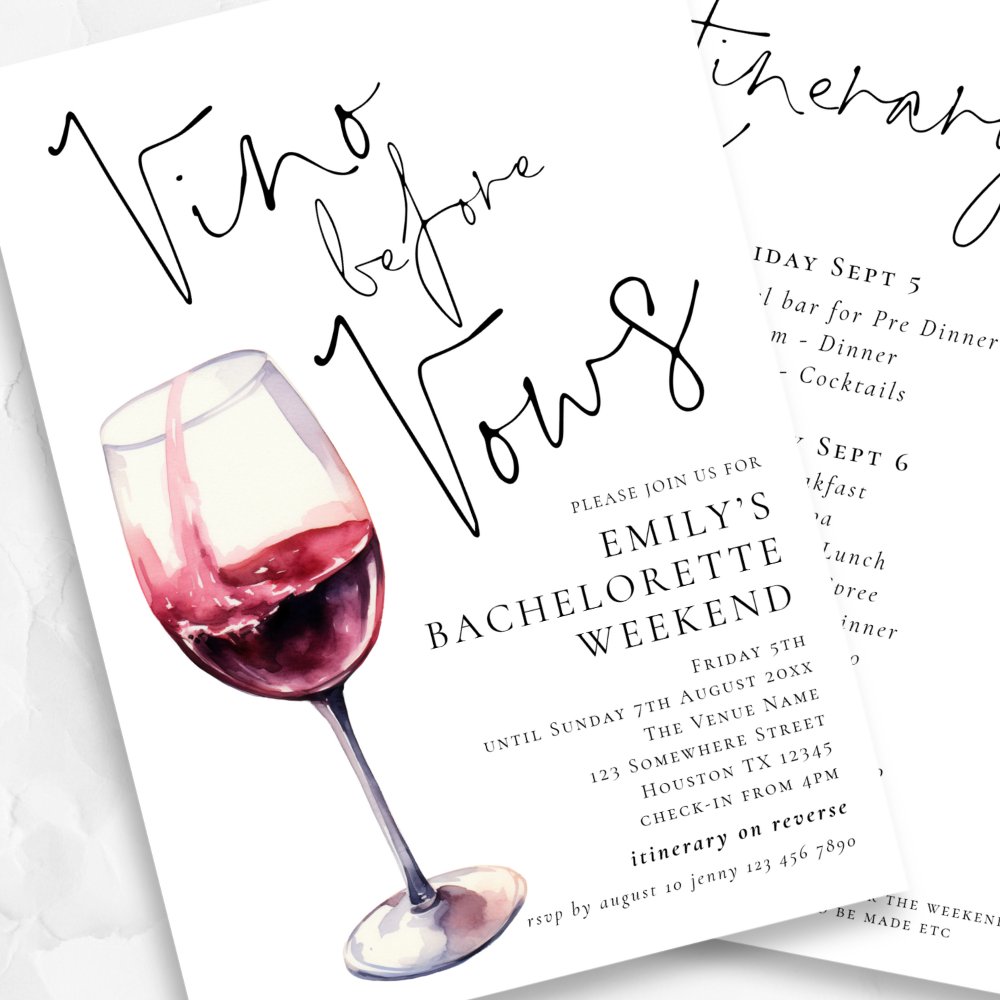 Vino
before
Vows
PLEASE JOIN US FOR
EMILY'S
BACHELORETTE
WEEKEND
FRIDAY 5TH
UNTIL SUNDAY 7TH AUGUST 20XX
THE VENUE NAME
123 SOMEWHERE STREET
HOUSTON TX 12345
CHECK-IN FROM 4PM
itinerary on reverse
rsvp by august 10 jenny 123 456 7890
SEPT 5
bar for Pre Dinner
- Dinner
- Cocktails
SEPT 6
Lunch
THE WEEKEND
BE MADE ETC